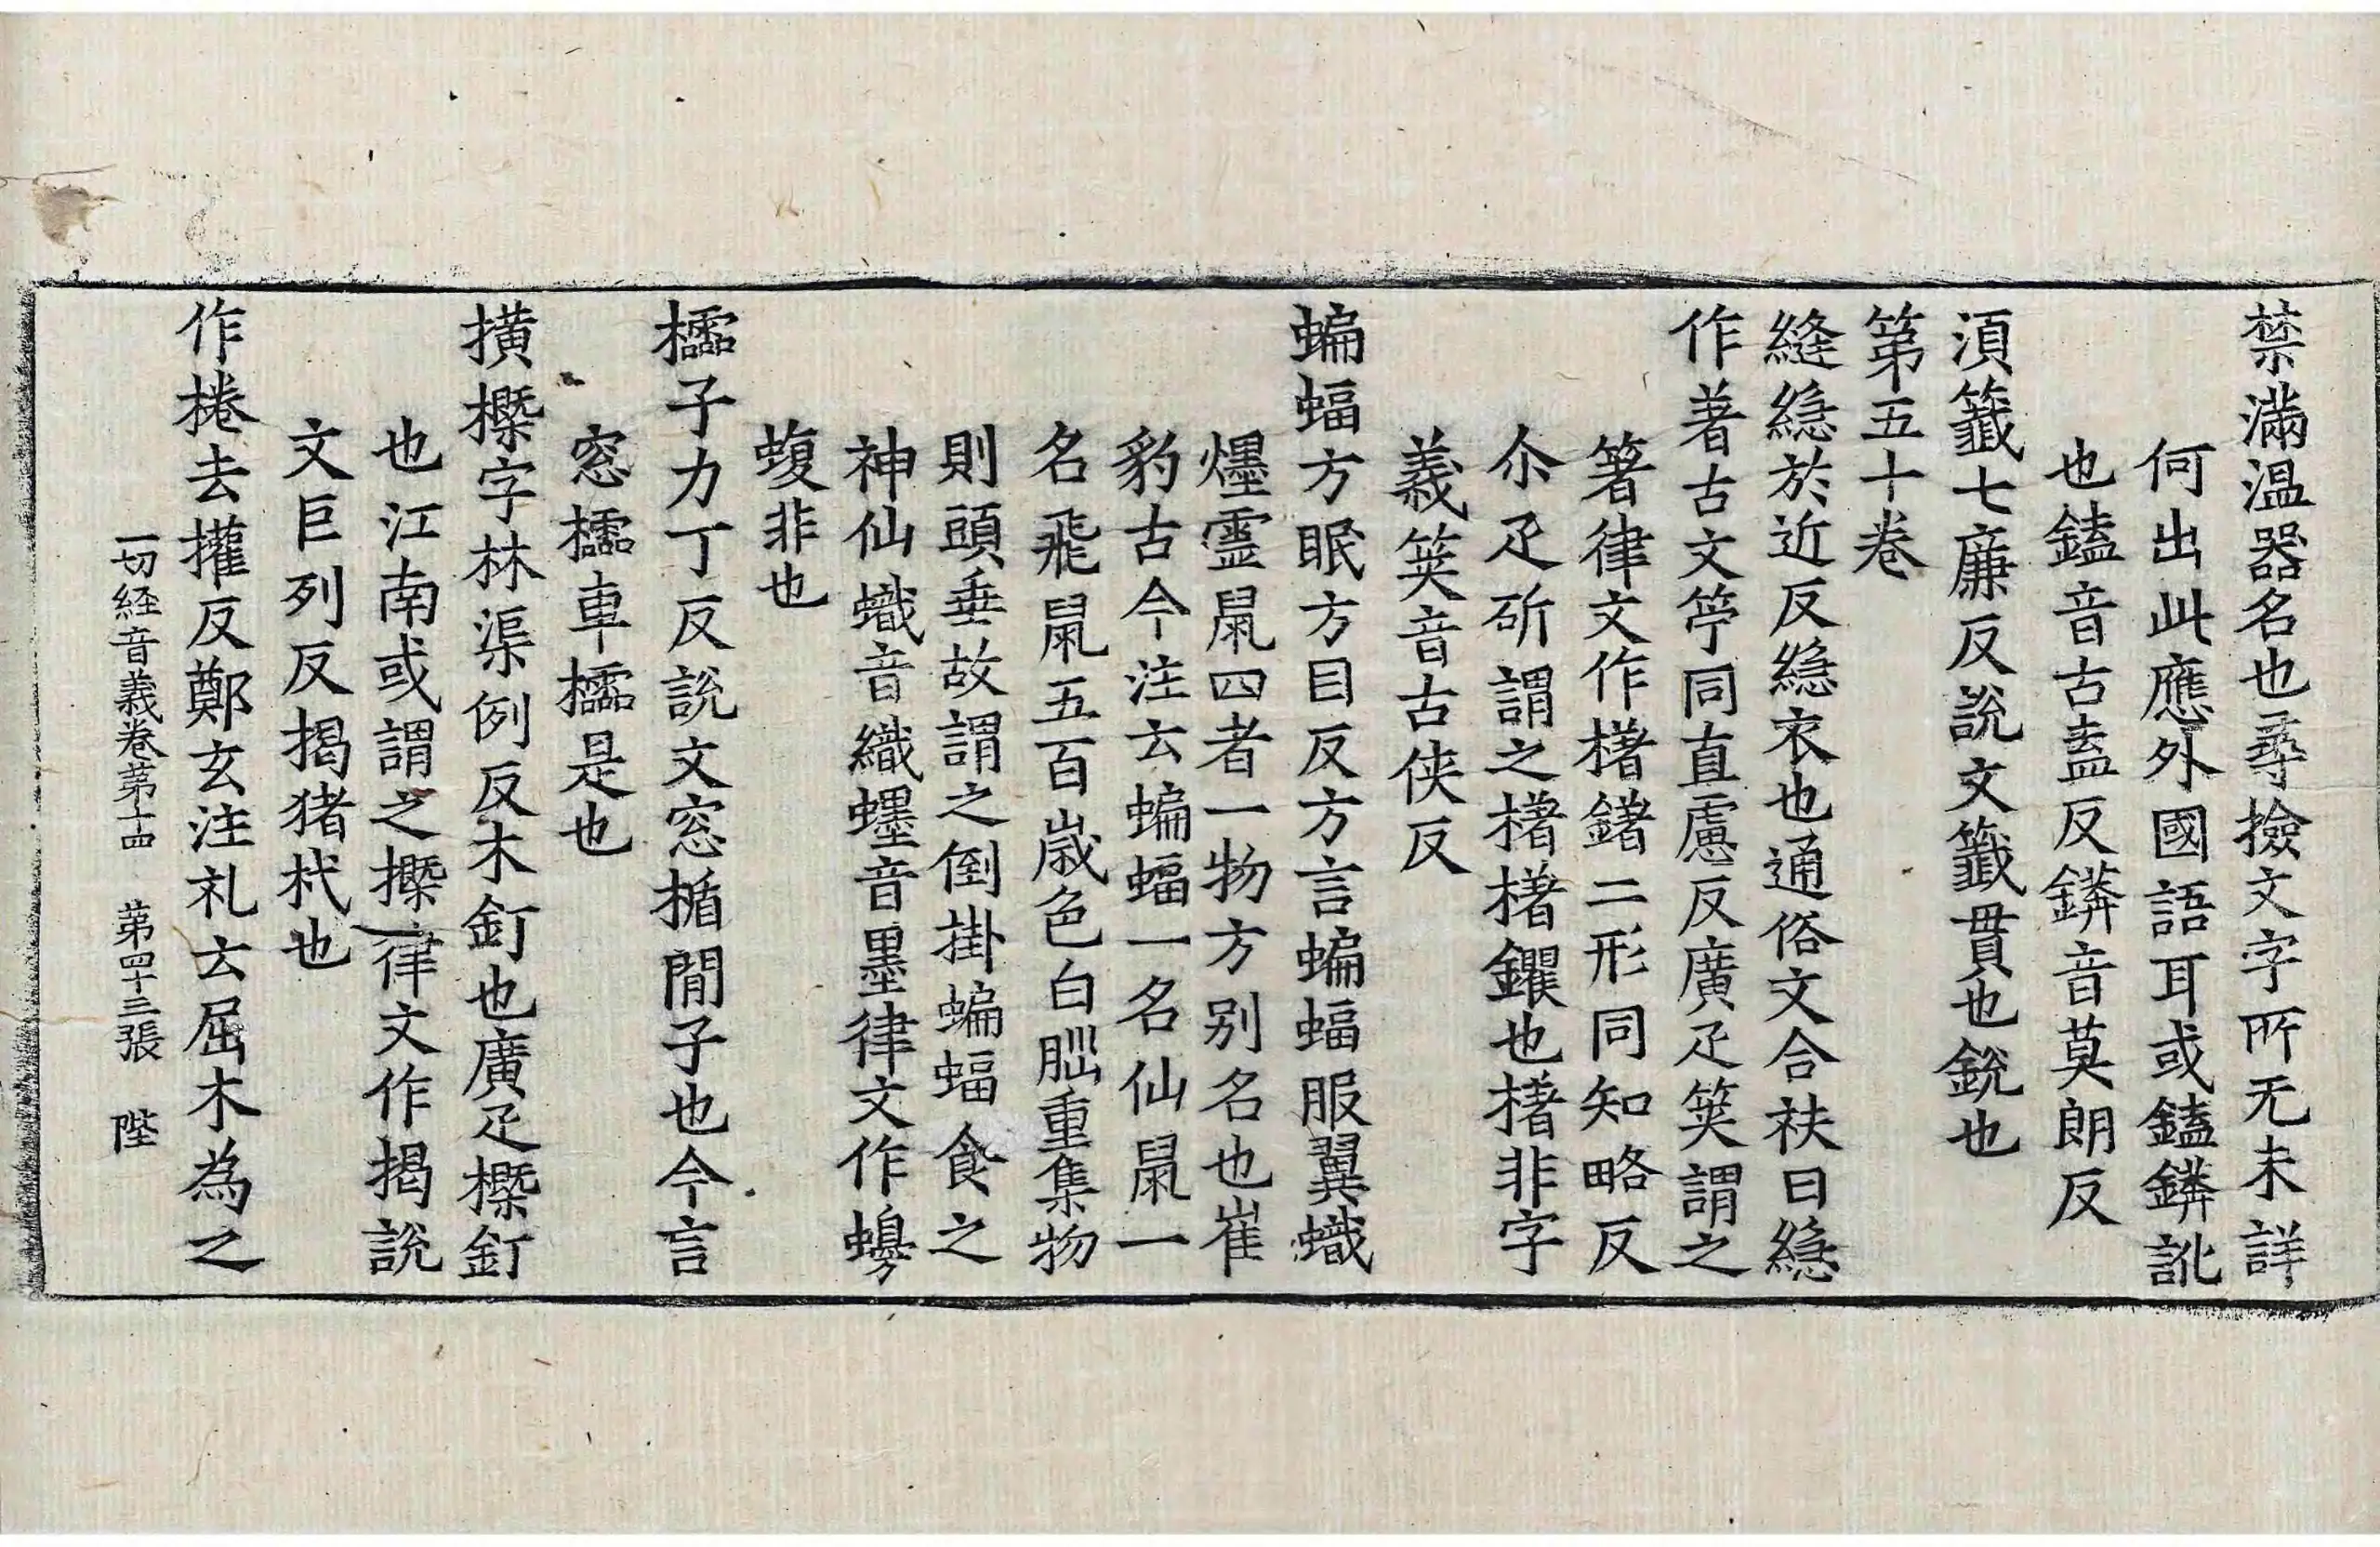 禁滿温器名也尋撿文字所无未詳
何出此應外國語耳或鎑鏻訛
也鎑音古盍反鏻音莫朗反
湏籖七廉反説文籖貫也銳也
第五十卷
縫繦於近反繦衣也通俗文合袟曰繦
作著古文竚同直慮反廣疋筴謂之
箸律文作櫡鐯二形同知略反
尒疋斫謂之櫡櫡钁也櫡非字
義筴音古俠反
蝙蝠方眠方目反方言蝙蝠服翼蟙
䘃靈鼠四者一物方別名也崔
豹古今注云蝙蝠一名仙鼠一
名飛鼠五百歲色白腦重集物
則頭垂故謂之倒掛蝙蝠食之
神仙蟙音織䘃音墨律文作
蝮非也
櫺子力丁反説文窓楯閒子也今言
窓櫺車櫺是也
橫橜字林渠例反木釘也廣疋橜釘
也江南或謂之橜律文作揭説
文巨列反揭猪杙也
作棬去權反鄭玄注礼云屈木為之
一切経音義卷第十四 第四十三張 陛